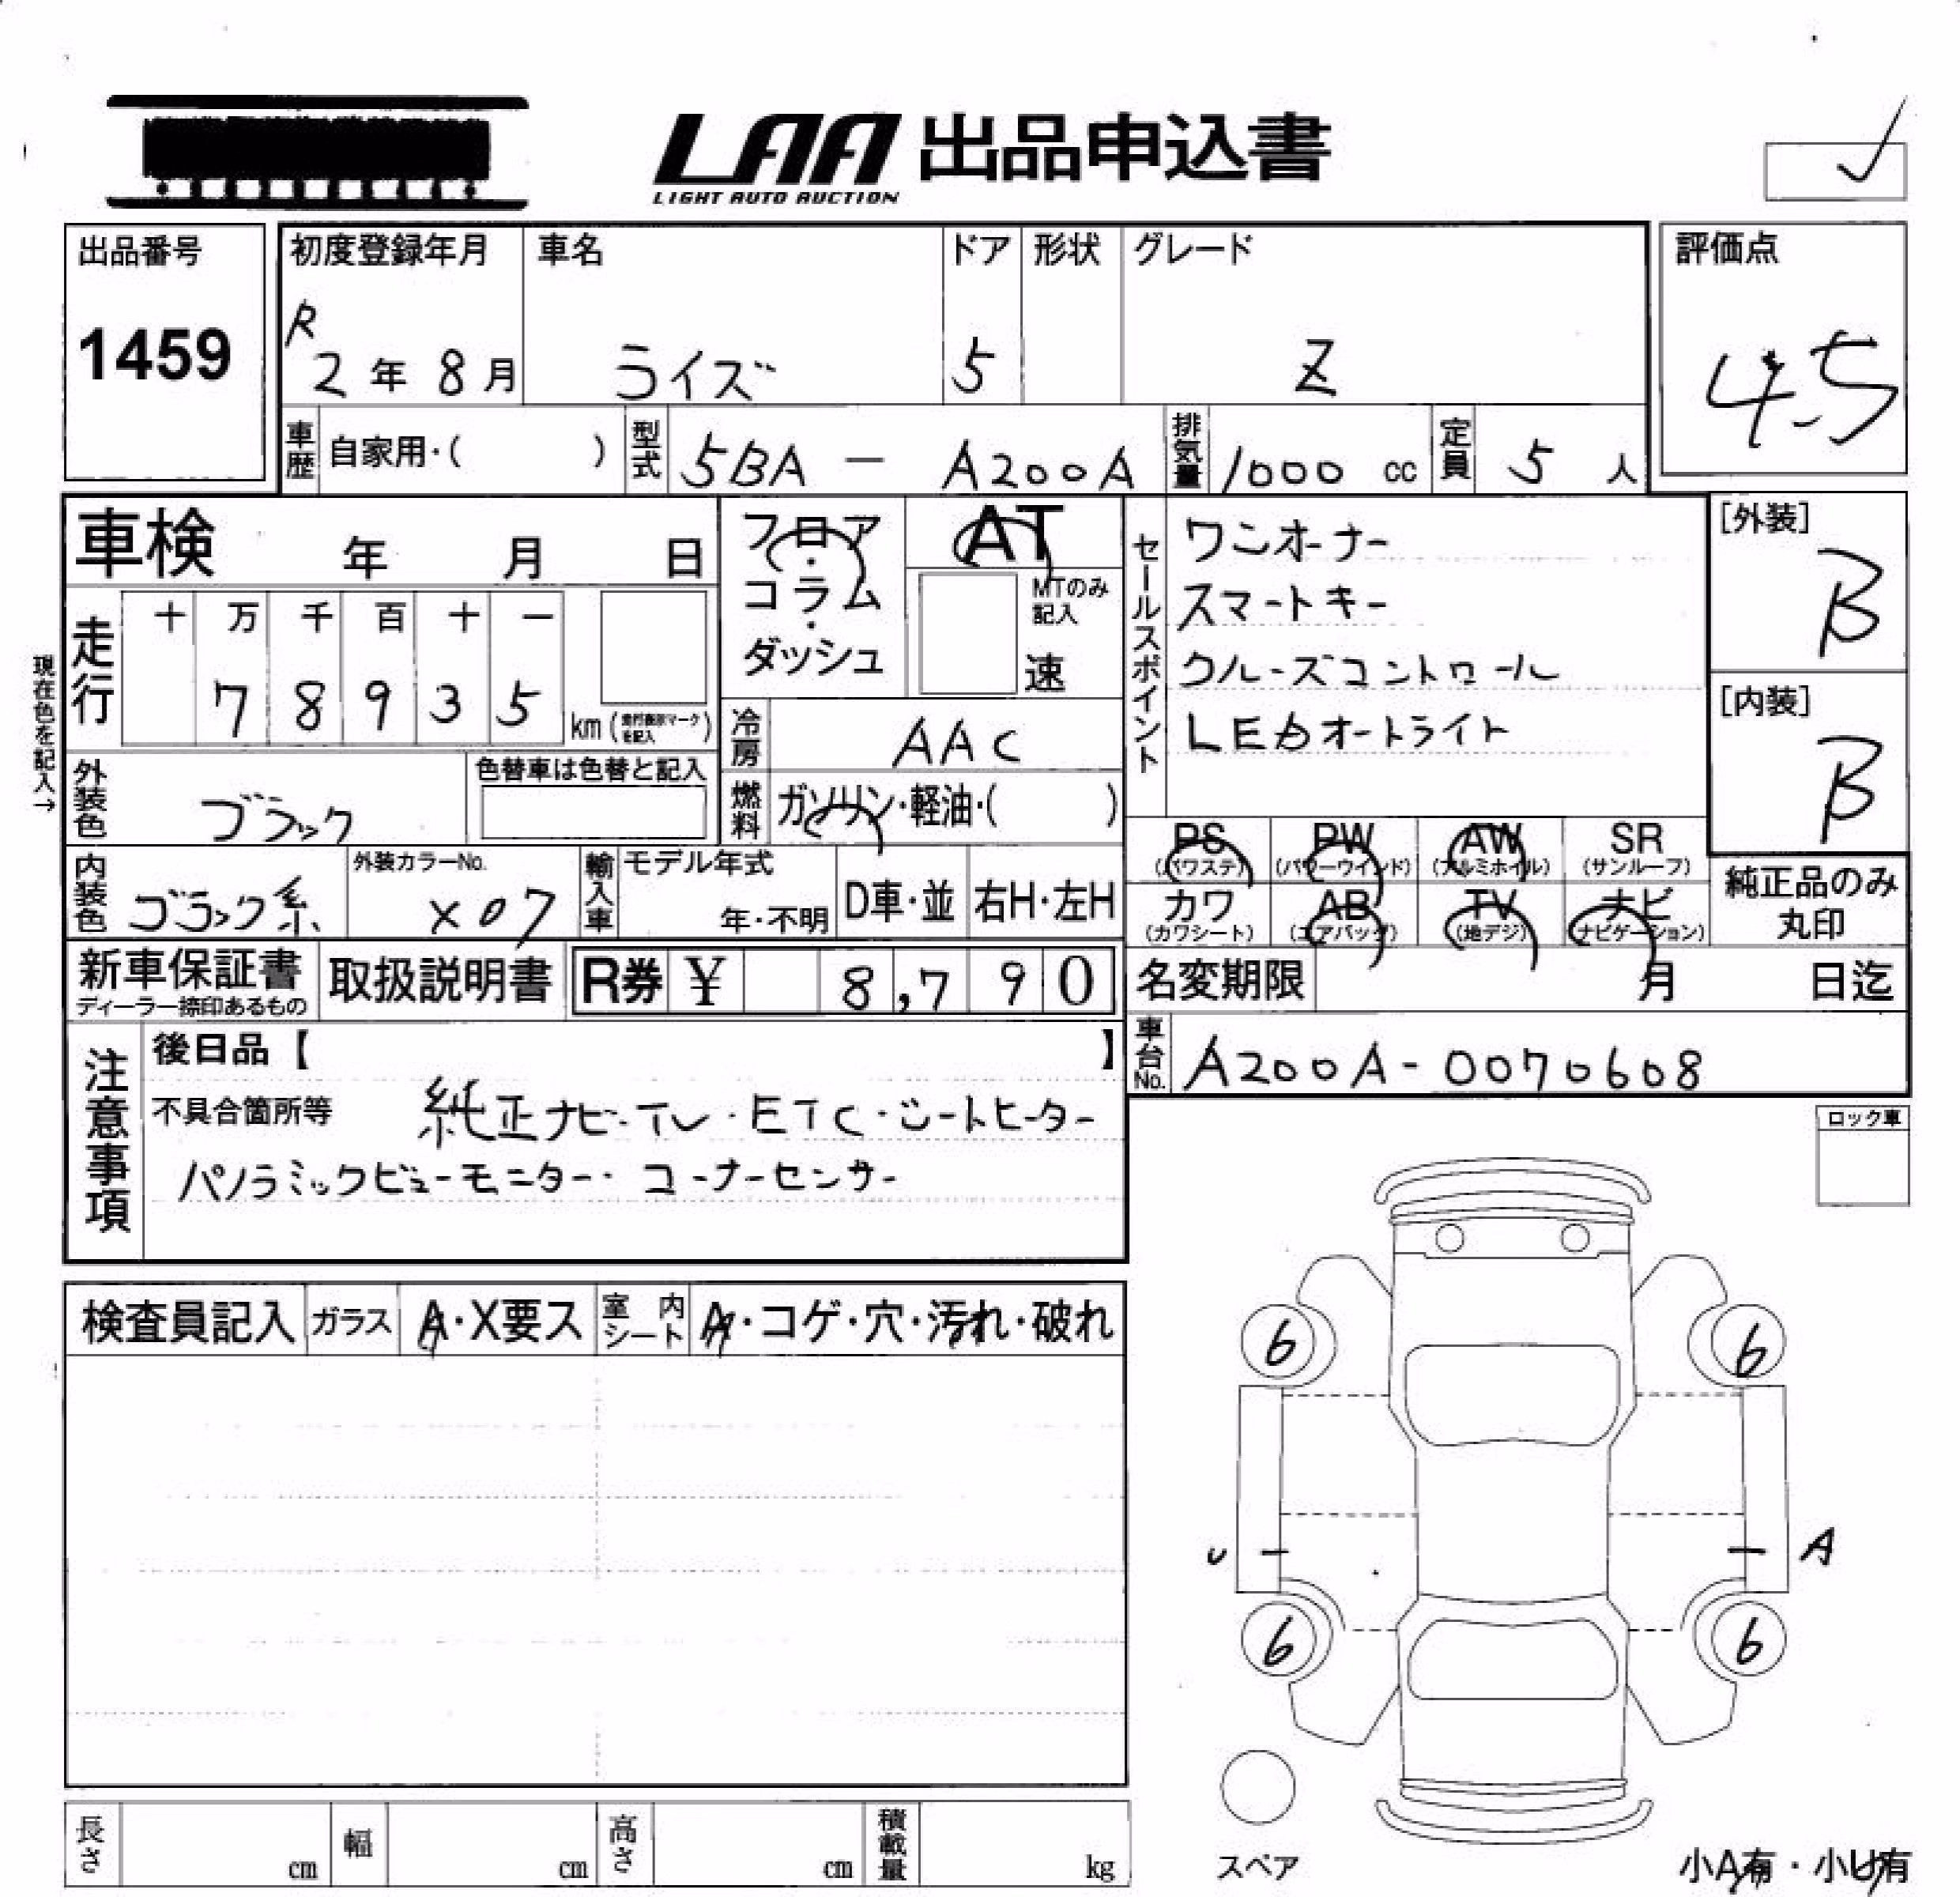 LAA 出品申込書
LIGHT AUTO AUCTION
出品番号
1459
初度登録年月
R 2年 8月
車名
ライズ
ドア
5
形状
グレード
Z
評価点
4.5
車歴 自家用・( )
型式 5BA - A200A
排気量 1000 cc
定員 5 人
車検 年 月 日
フロア・コラム・ダッシュ
AT
MTのみ記入
速
セールスポイント
ワンオーナー
スマートキー
クルーズコントロール
LEDオートライト
[外装]
B
[内装]
B
現在色を記入→
走行
十 万 千 百 十 一
7 8 9 3 5
km (走行表示マークを記入)
冷房 AAC
外装色 ブラック
色替車は色替と記入
燃料 ガソリン・軽油・( )
PS (パワステ)
PW (パワーウインド)
AW (アルミホイル)
SR (サンルーフ)
カワ (カワシート)
AB (エアバッグ)
TV (地デジ)
ナビ (ナビゲーション)
純正品のみ丸印
内装色 ブラック系
外装カラーNo.
X07
輸入車
モデル年式
年・不明
D車・並
右H・左H
新車保証書
ディーラー捺印あるもの
取扱説明書
R券 ¥ 8,790
名変期限 月 日迄
車台No. A200A-0070608
注意事項
後日品【 】
不具合箇所等 純正ナビ・TV・ETC・シートヒーター
パノラミックビューモニター・コーナーセンサー
ロック車
検査員記入
ガラス A・X要ス
室内シート A・コゲ・穴・汚れ・破れ
6 6
U A
6 6
スペア
小A有・小U有
長さ cm
幅 cm
高さ cm
積載量 kg